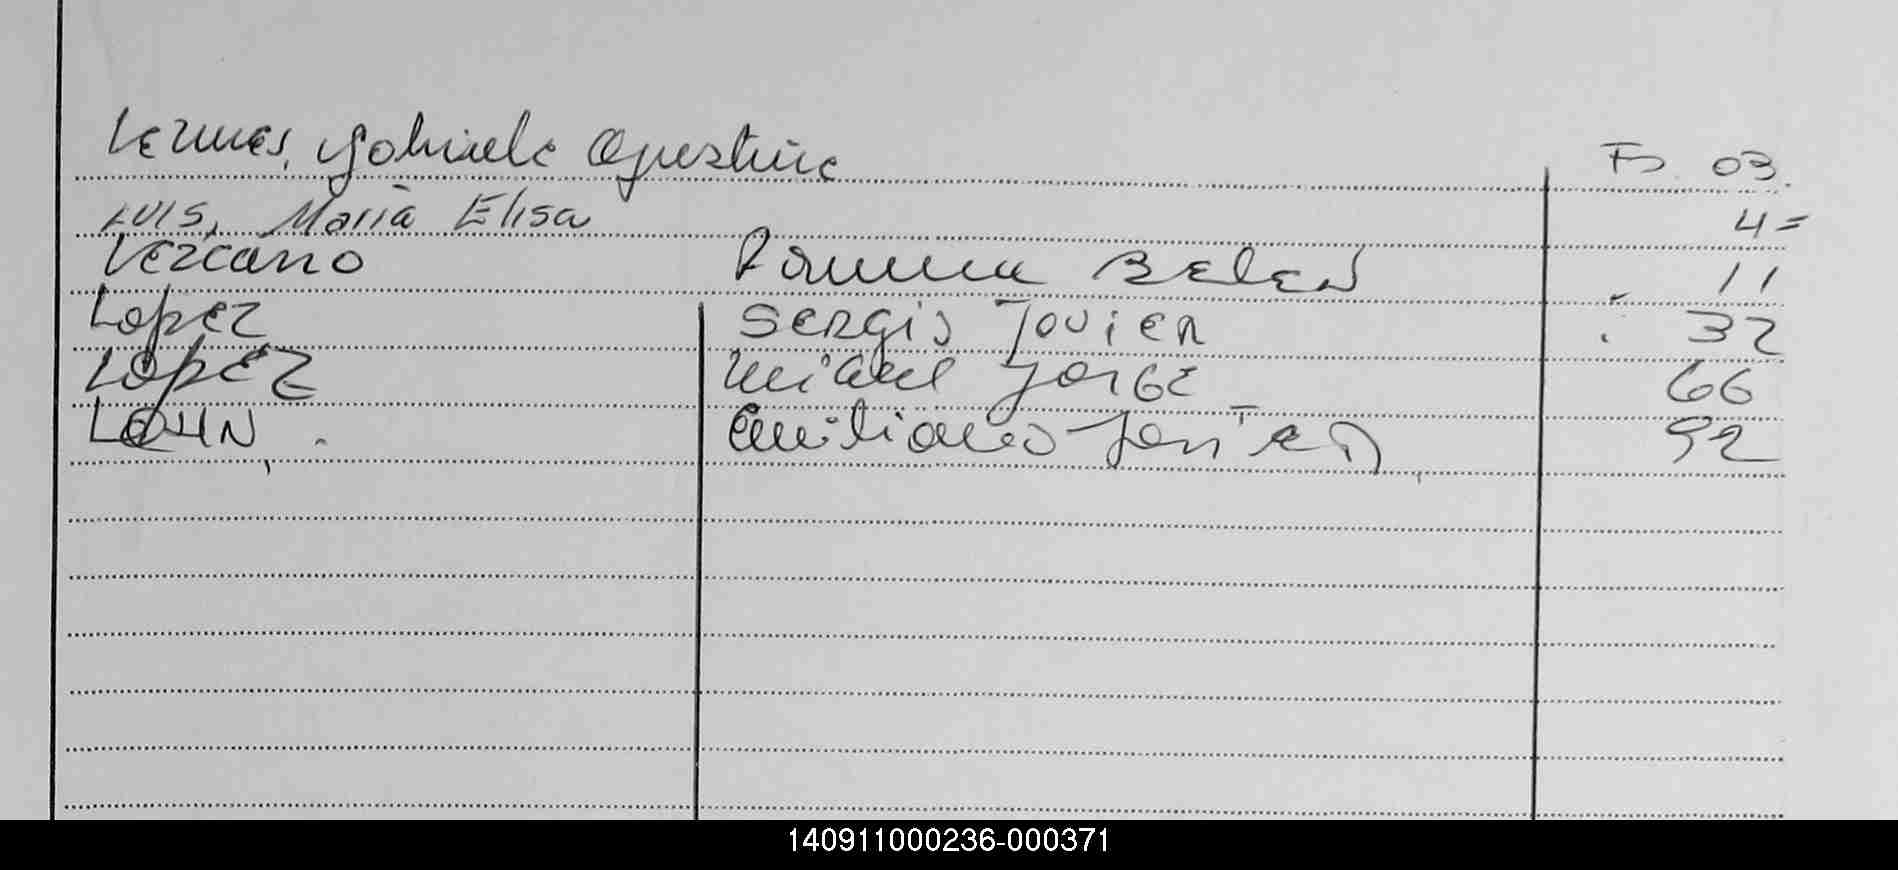 Lemes, Gabriela Agustina Fs. 03.
LUIS, María Elisa 4=
Lezcano Romina BELEN 11
Lopez Sergio Javier 32
LOPEZ Miguel Jorge 66
LAHN Emiliano 92
140911000236-000371